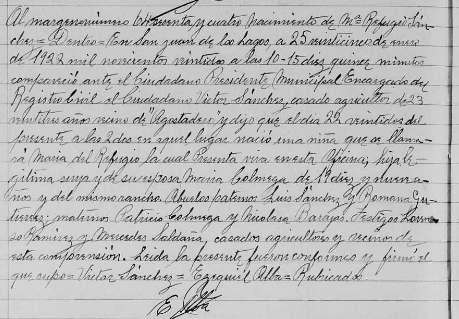 Al margen=número 64 sesenta y cuatro Nacimiento de Mª Refugio Sán-
chez= Dentro= En San Juan de los Lagos, a 25 veinticinco de enero
de 1922 mil novecientos veintidos a las 10-15 diez quince minutos
compareció ante el Ciudadano Presidente Municipal Encargado del
Registro Civil el Ciudadano Victor Sánchez, casado agricultor de 23
veintitres años vecino de "Agostadero" y dijo que el día 22 veintidos del
presente a las 2 dos en aquel lugar nació una niña que se llama-
rá María del Refugio, la cual Presenta viva en esta Oficina, hija le-
gítima suya y de su esposa María Colmega de 19 diez y nueve a-
ños y del mismo rancho Abuelos paternos Luis Sánchez y Romana Gu-
tierrez; maternos Patricio Colmega y Nicolasa Barajas. Testigos Loren-
zo Ramírez y Mercedes Saldaña, casados agricultores y vecinos de
esta comprensión. Leída la presente fueron conformes y firmó el
que supo= Victor Sánchez= Ezequiel Alba= Rubricados
E Alba